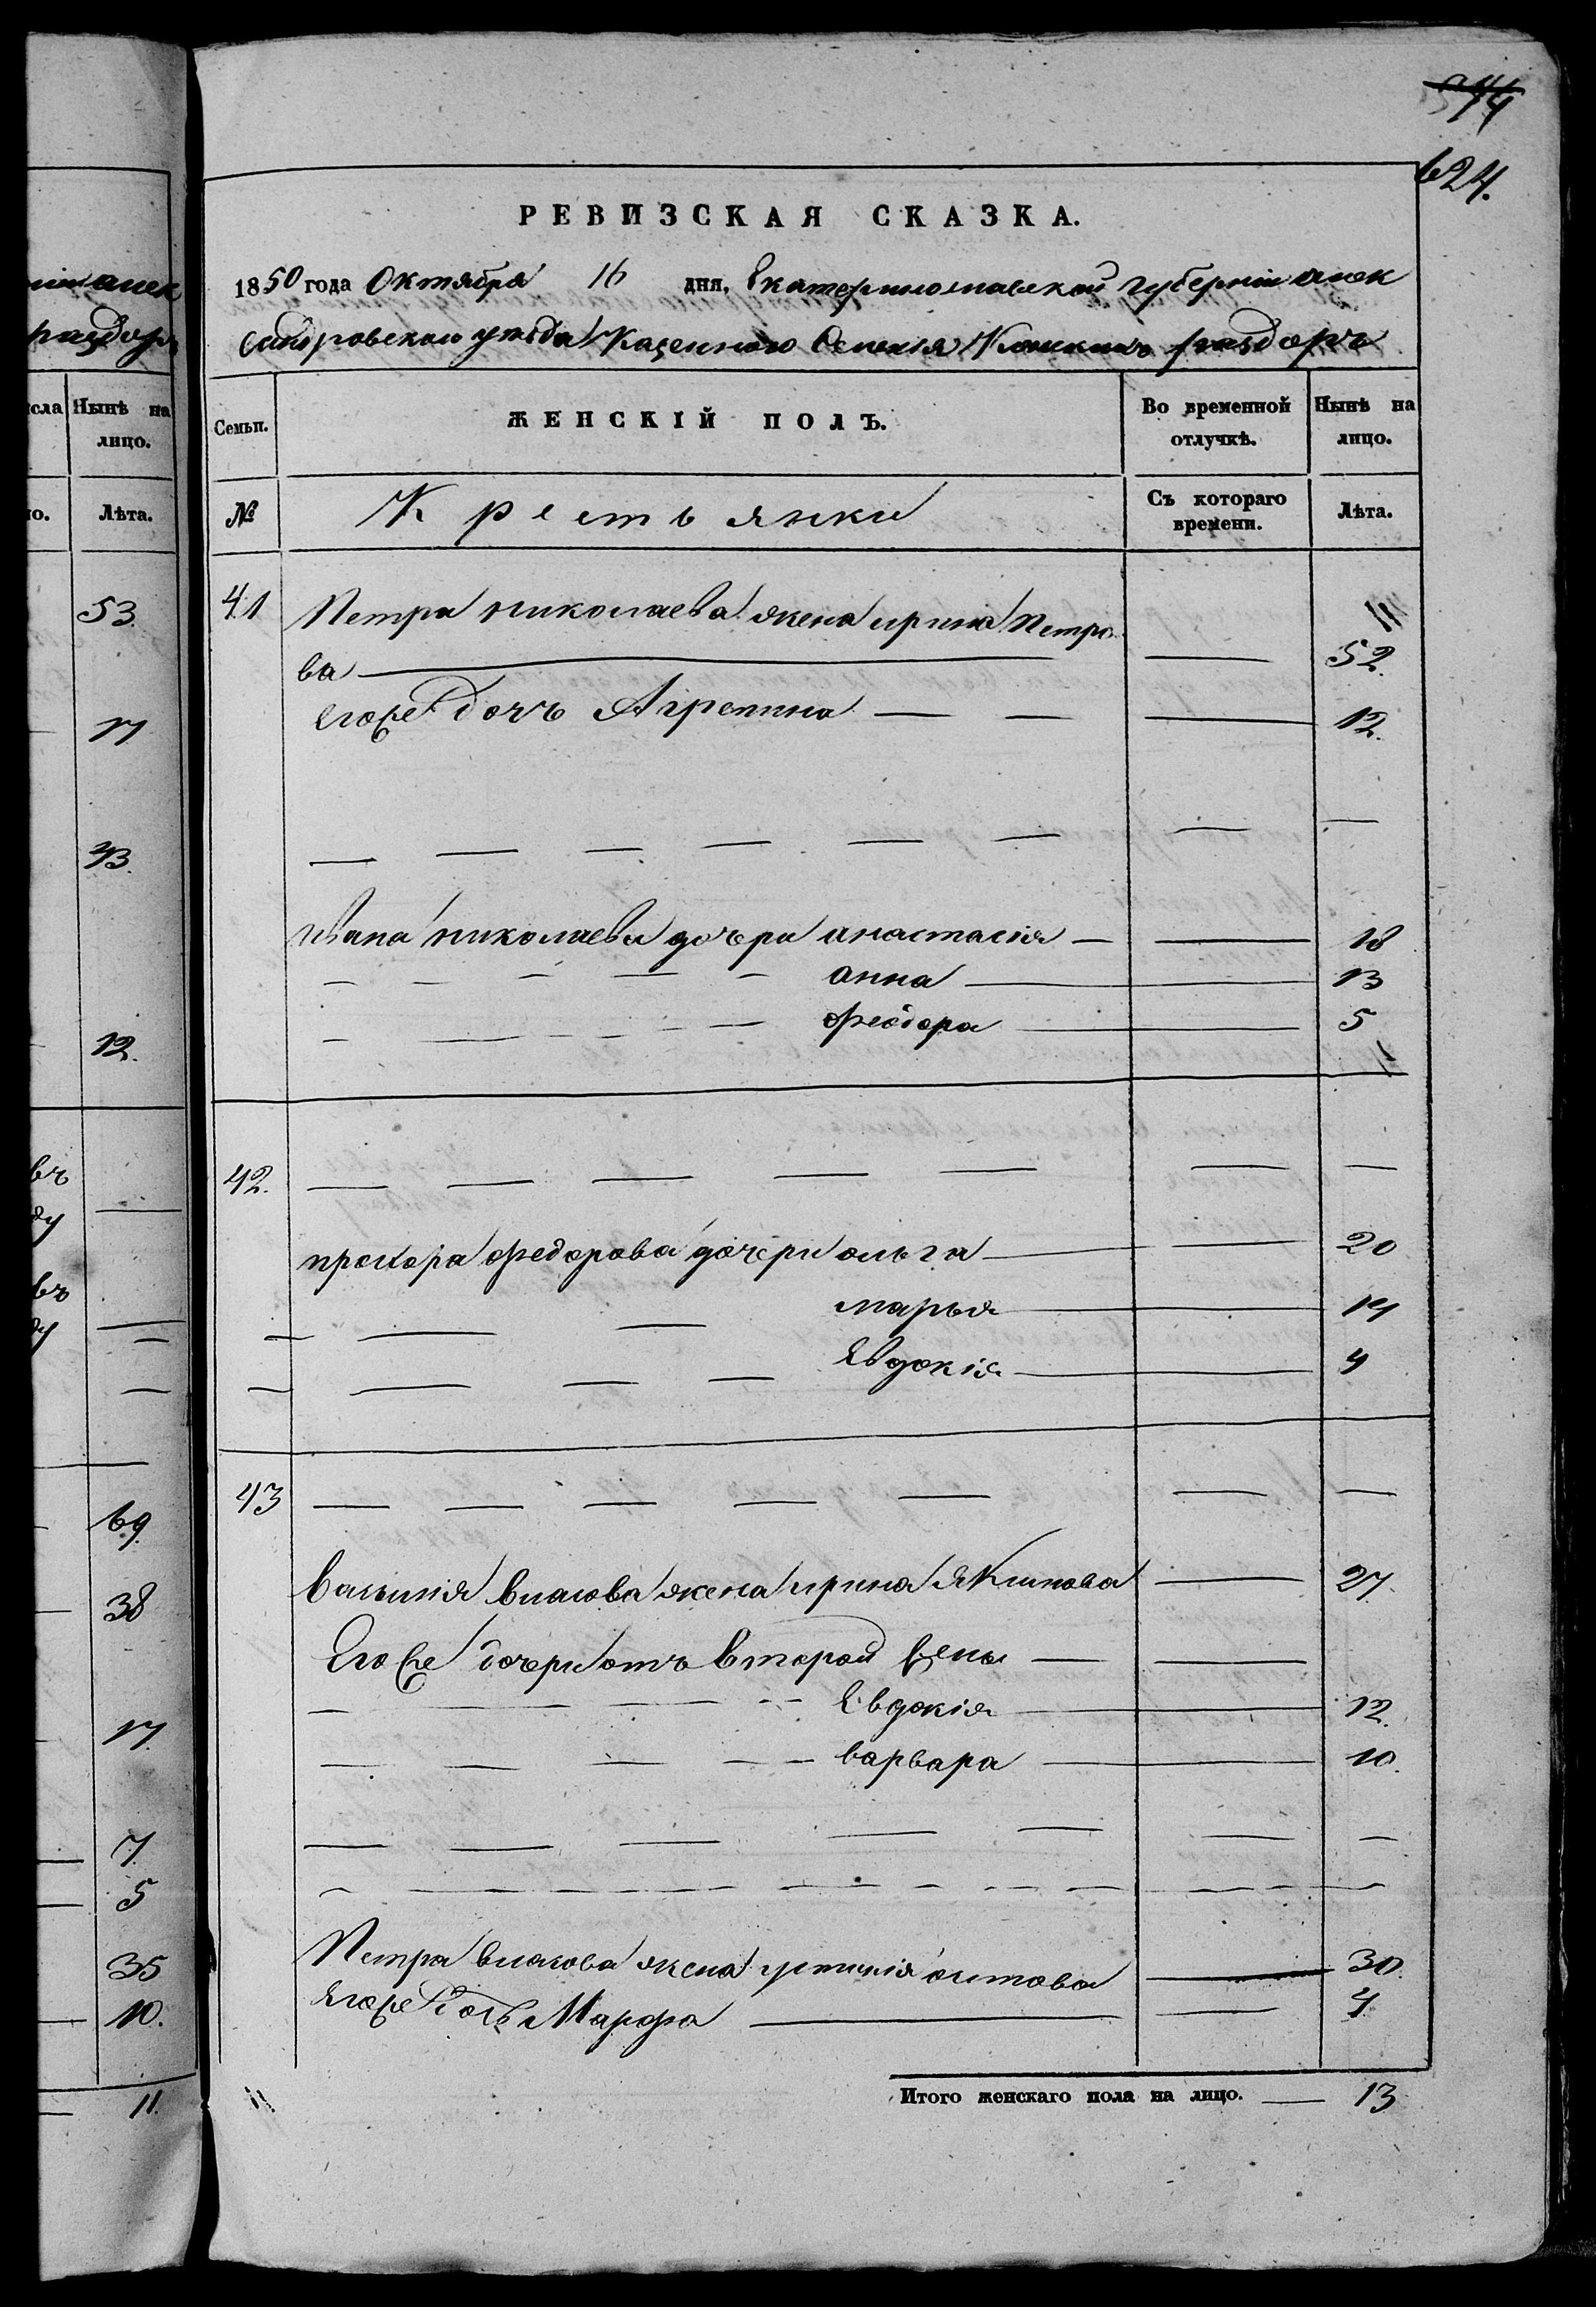 624.
РЕВИЗСКАЯ СКАЗКА.
1850 года Октября 16 дня, Екатеринославской губерніи алек
сандровского уѣзда Казенного Селенія Конскихъ раздоръ
Семьи.
ЖЕНСКІЙ ПОЛЪ.
Во временной отлучкѣ.
Нынѣ на лицо.
№
Крестьянки
Съ котораго времени.
Лѣта.
41 Петра николаева жена ирина Петро
ва 52.
Егоже дочъ Агрепина 12.
ивана николаева дочери анастасія 18
анна 13
феодора 5
42.
прохора федорова дочери ольга 20
марья 14
Евдокія 4
43
василия власова жена ирина Якимова 27.
Егоже дочери отъ второй жены
Евдокія 12.
варвара 10.
Петра власова жена устинія титова 30.
Егоже дочь Марфа 4
Итого женскаго пола на лицо. 13
алек
раздоръ
сла
Нынѣ на лицо.
Лѣта.
53.
17
43.
12.
въ
ду
въ
ду
69.
38
17.
7.
5
35
10.
11.